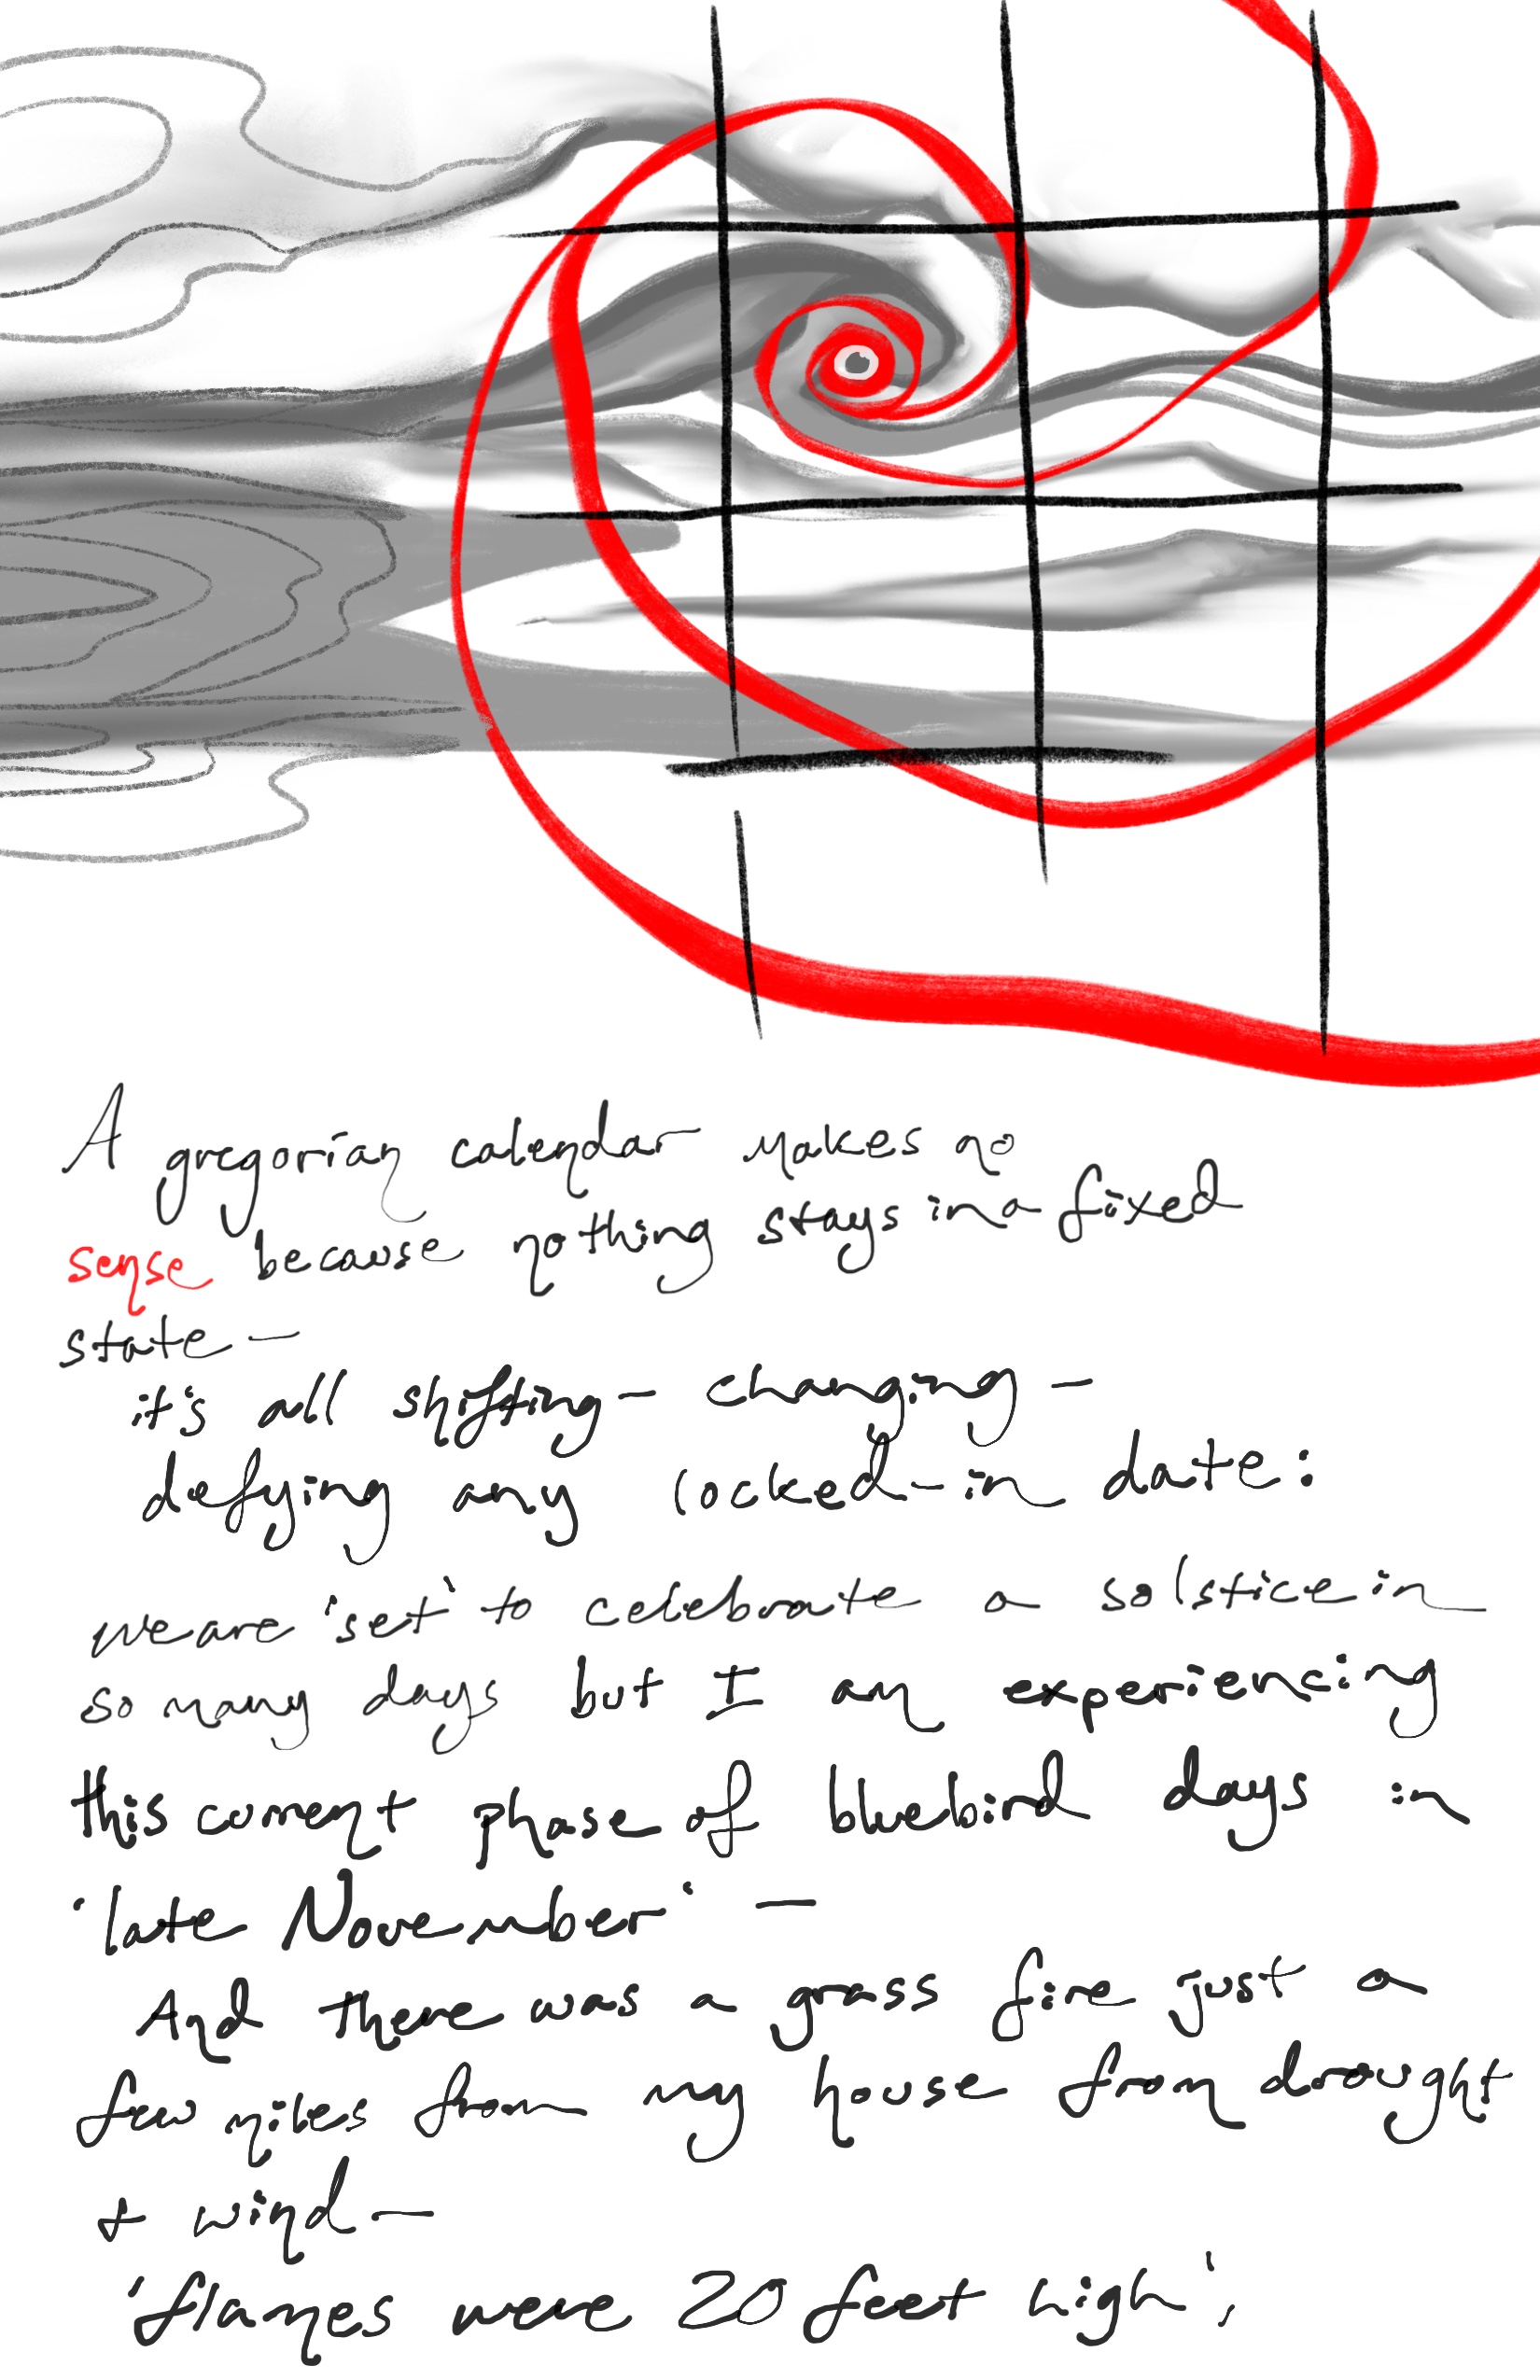 A gregorian calendar makes no
sense because nothing stays in a fixed
state —
it's all shifting — changing —
defying any locked-in date:
we are 'set' to celebrate a solstice in
so many days but I am experiencing
this current phase of bluebird days in
'late November' —
And there was a grass fire just a
few miles from my house from drought
+ wind —
'flames were 20 feet high',